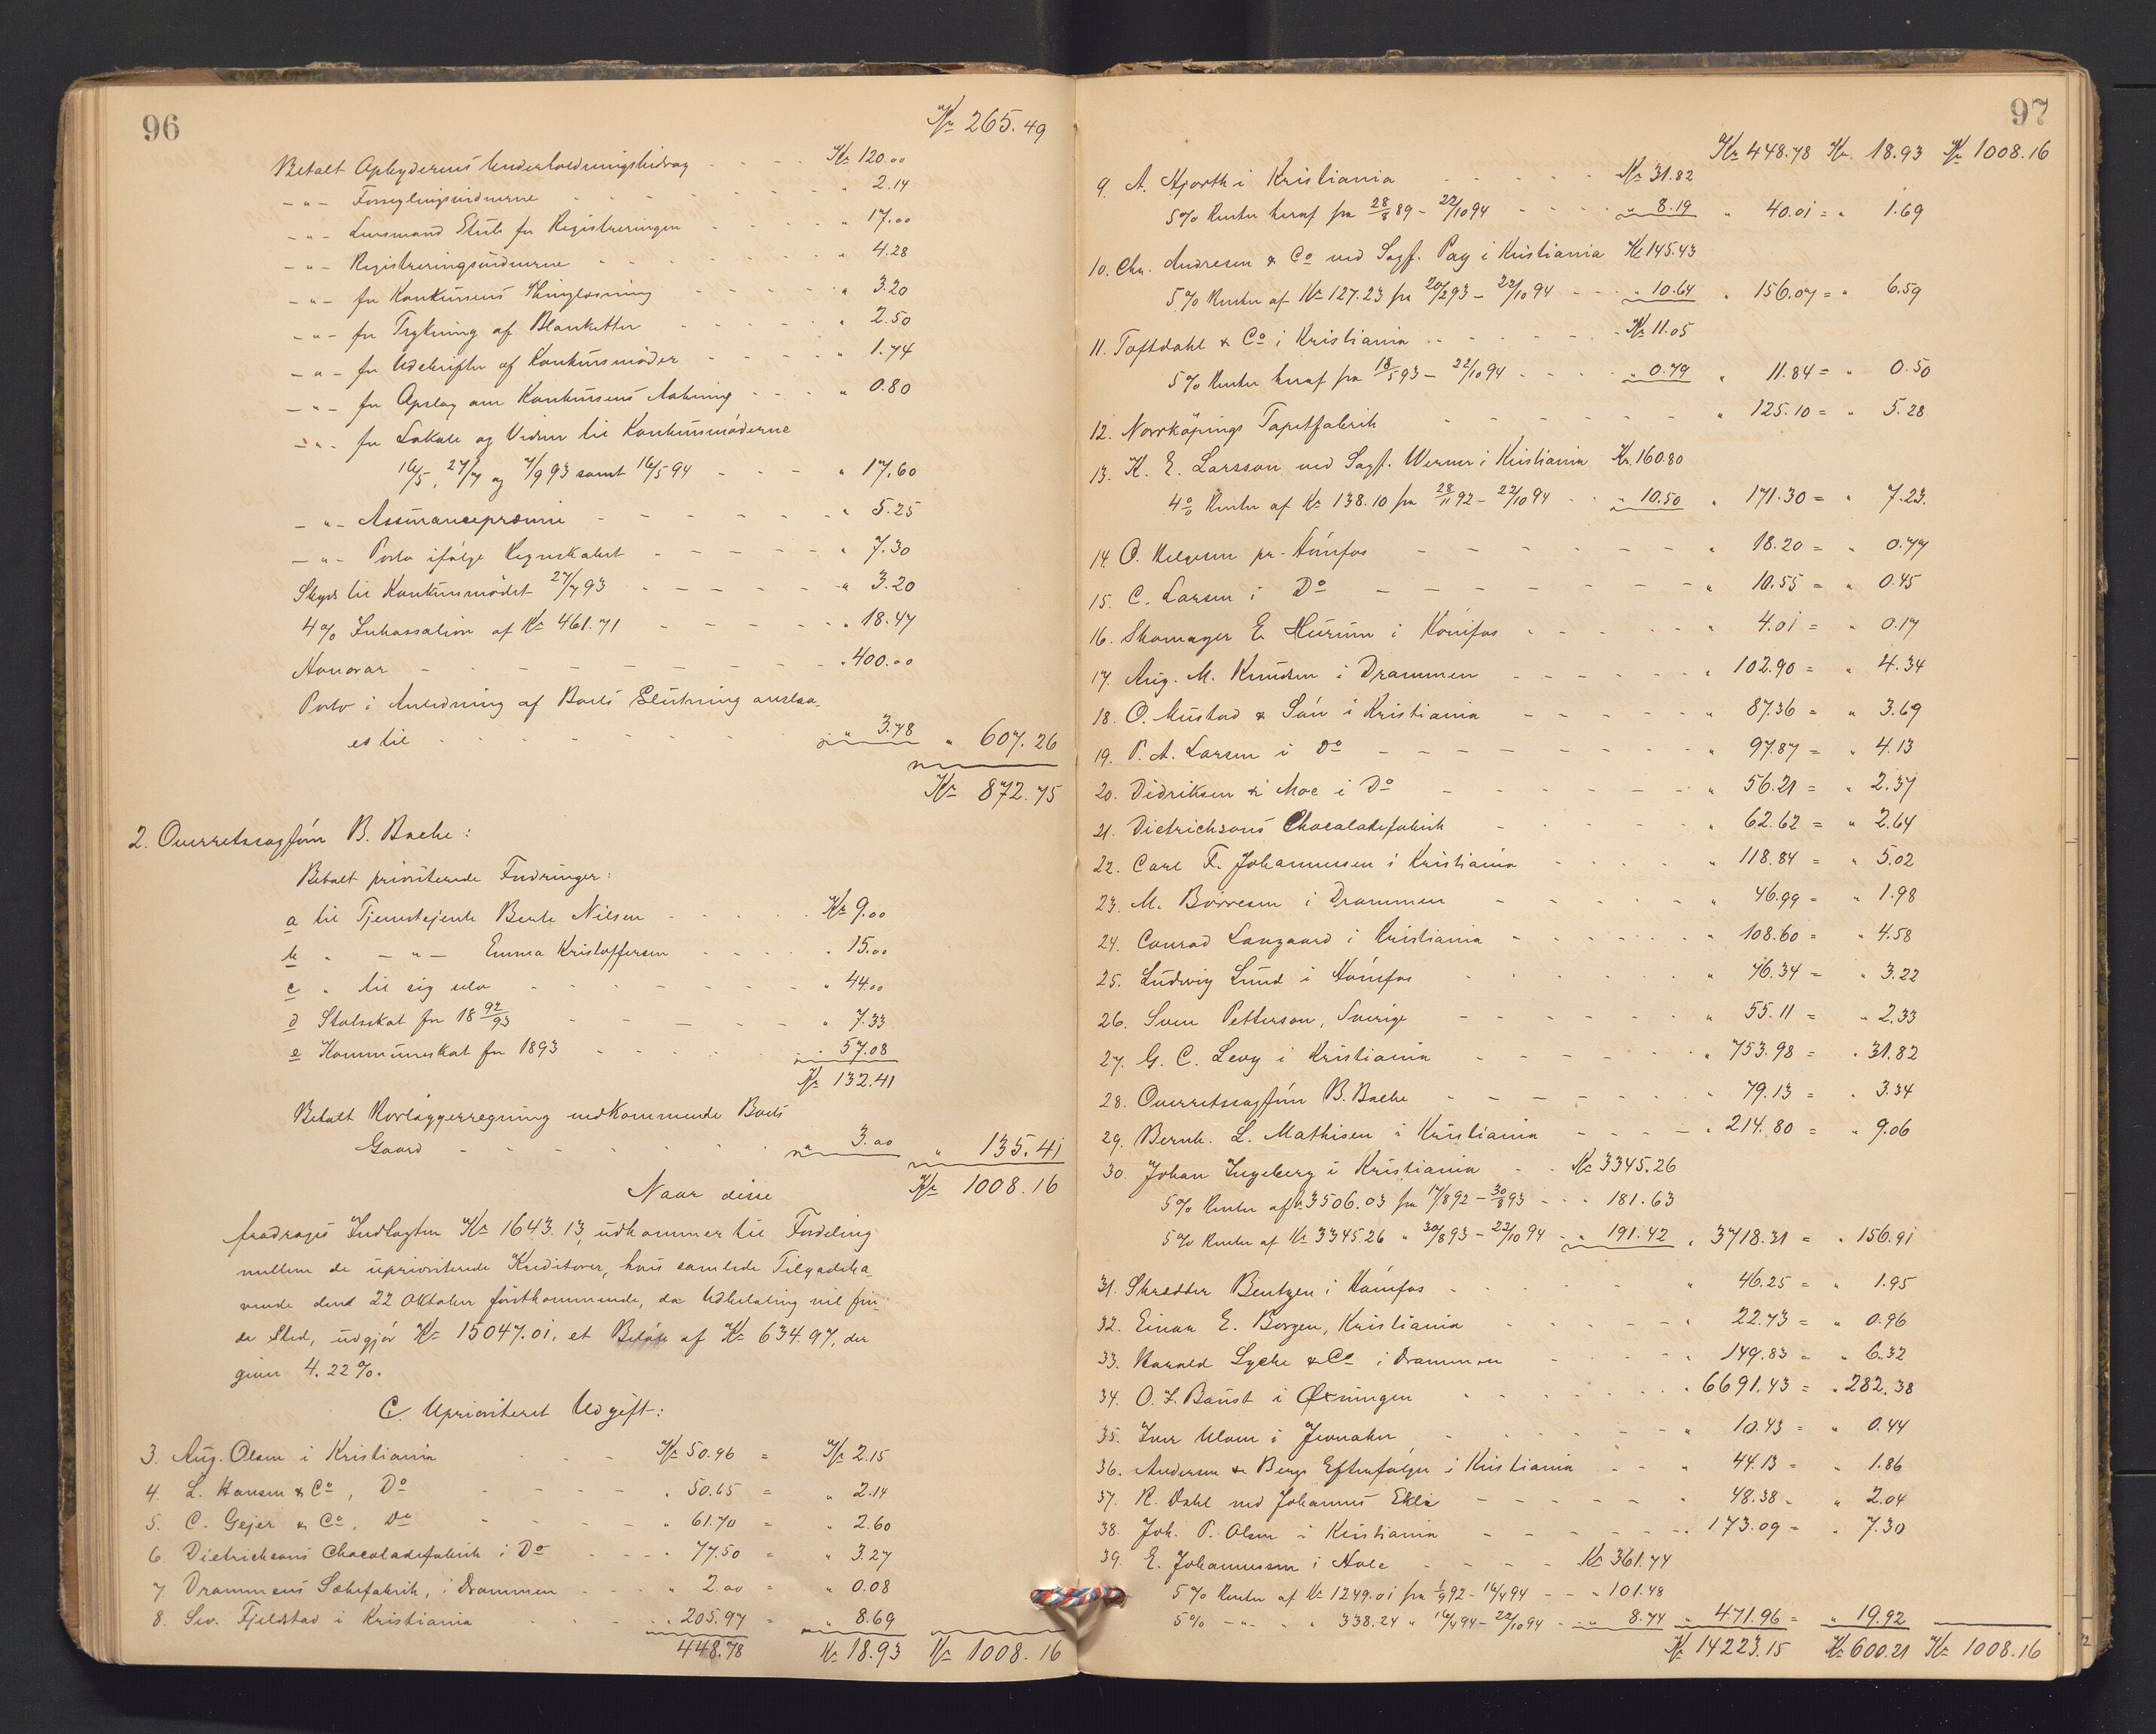 96
Kr 265.49
Betalt Opbyderens Underholdningsbidrag - - - Kr 120.00
-"- Forseglingsvidnerne - - - " 2.14
-"- Lensmand for Registreringen - - - " 17.00
-"- Registreringsvidnerne - - - " 4.28
-"- for Konkursens Thinglæsning - - - " 3.20
-"- for Trykning af Blanketter - - - " 2.50
-"- for Udskrifter af Konkursmøder - - - " 1.74
-"- for Opslag om Konkursens - - - " 0.80
-"- for Lokale og Vidner til Konkursmøderne
16/5, 27/7 og 7/9 93 samt 16/5 94 - - - " 17.60
-"- Assurancepræmie - - - " 5.25
-"- Porto ifølge Regnskabet - - - " 7.30
Skyds til Konkursmødet 27/7 93 - - - " 3.20
4% Inkassation af Kr 461.71 - - - " 18.47
Honorar - - - " 400.00
Porto i Anledning af Boets Slutning anslaa-
es til - - - " 3.78 " 607.26
Kr 872.75
2. Overretssagfør B. Bache:
Betalt prioriterede Fordringer:
a til Tjenestejente Berte Nilsen - - - Kr 9.00
b " -"- Emma Kristoffersen - - - " 15.00
c " til sig selv - - - " 44.00
d Statsskat for 18 92/93 - - - " 7.33
e Kommuneskat for 1893 - - - " 57.08
Kr 132.41
Betalt Rørlæggerregning vedkommende Boets
Gaard - - - " 3.00 " 135.41
Naar disse Kr 1008.16
fradrages Indtægten Kr 1643.13, udkommer til Fordeling
mellem de uprioriterede Kreditorer, hvis samlede Tilgodeha-
vende den 22 Oktober førstkommende, da Udbetaling vil fin-
de Sted, udgjør Kr 15047.01, et Beløb af Kr 634.97, der
giver 4.22%.
C. Uprioriteret Udgift:
3. Aug. Olsen i Kristiania - - - Kr 50.96 = Kr 2.15
4. L. Hansen & Co, Do - - - " 50.65 = " 2.14
5. C. Gejer & Co, Do - - - " 61.70 = " 2.60
6. Dietrichsons Chocoladefabrik i Do - - - " 77.50 = " 3.27
7. Drammens Sæbefabrik, i Drammen - - - " 2.00 = " 0.08
8. Sev. Fjeldstad i Kristiania - - - " 205.97 = " 8.69
448.78 Kr 18.93 Kr 1008.16
97
Kr 448.78 Kr. 18.93 Kr 1008.16
9. A. Hjorth i Kristiania - - - Kr 31.82
5% Renter heraf fra 28/8 89 - 22/10 94 - - - " 8.19 " 40.01 = " 1.69
10. Chr. Andresen & Co ved Sagf. Pay i Kristiania Kr 145.43
5% Renter af Kr 127.23 fra 20/2 93 - 22/10 94 - - - " 10.64 " 156.07 = " 6.59
11. Toftdahl & Co i Kristiania - - - Kr 11.05
5% Renter heraf fra 18/5 93 - 22/10 94 - - - " 0.79 " 11.84 = " 0.50
12. Norrköpings Tapetfabrik - - - " 125.10 = " 5.28
13. K. E. Larsson ved Sagf. Werner i Kristiania Kr. 160.80
4% Renter af Kr 138.10 fra 28/11 92 - 22/10 94 - - " 10.50 " 171.30 = " 7.23.
14. O. Helgesen pr. Hønefos - - - " 18.20 = " 0.77
15. C. Larsen i Do - - - " 10.55 = " 0.45
16. Skomager E. Hurum i Hønefos - - - " 4.01 = " 0.17
17. Aug. M. Knudsen i Drammen - - - " 102.90 = " 4.34
18. O. Mustad & Søn i Kristiania - - - " 87.36 = " 3.69
19. P. A. Larsen i Do - - - " 97.87 = " 4.13
20. Didriksen & Moe i Do - - - " 56.21 = " 2.37
21. Dietrichsons Chocoladefabrik - - - " 62.62 = " 2.64
22. Carl F. Johannessen i Kristiania - - - " 118.84 = " 5.02
23. M. Børresen i Drammen - - - " 46.99 = " 1.98
24. Conrad Langaard i Kristiania - - - " 108.60 = " 4.58
25. Ludvig Lund i Hønefos - - - " 76.34 = " 3.22
26. Sven Petterson, Sverige - - - " 55.11 = " 2.33
27. G. C. Levy i Kristiania - - - " 753.98 = " 31.82
28. Overretssagfør B. Bache - - - " 79.13 = " 3.34
29. Bernh. L. Mathisen i Kristiania - - - " 214.80 = " 9.06
30. Johan Ingeberg i Kristiania - - Kr 3345.26
5% Renter af Kr 3506.03 fra 17/8 92 - 30/8 93 - - - 181.63
5% Renter af Kr 3345.26 " 30/8 93 - 22/10 94 - " 191.42 " 3718.31 = " 156.91
31. Skrædder Bentzen i Hønefos - - - " 46.25 = " 1.95
32. Einar E. Borgen, Kristiania - - - " 22.73 = " 0.96
33. Harald Lyche & Co i Drammen - - - " 149.83 = " 6.32
34. O. L. Baust i - - - " 6691.43 = " 282.38
35. Iver Ulven i Jevnaker - - - " 10.43 = " 0.44
36. Andersen & Bergs Efterfølger i Kristiania - - " 44.13 = " 1.86
37. R. Dahl ved Johannes - - - " 48.38 = " 2.04
38. Joh. P. Olsen i Kristiania - - - " 173.09 = " 7.30
39. E. Johannessen i Hole - - - Kr 361.74
5% Renter af Kr 1249.01 fra 1/9 92 - 16/4 94 - - - " 101.48
5% -"- " " 338.24 " 16/4 94 - 22/10 94 - " 8.74 " 471.96 = " 19.92
Kr 14223.15 Kr 600.21 Kr 1008.16